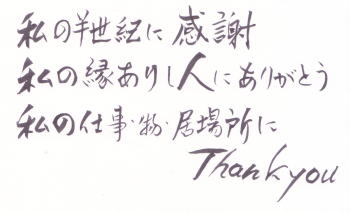 私の半世紀に感謝
私の縁ありし人にありがとう
私の仕事・物・居場所に
Thank you